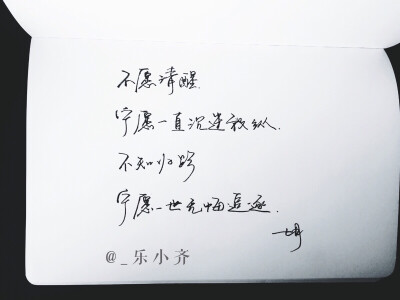 不愿清醒.
宁愿一直沉迷放纵.
不知归路
宁愿一世无悔追逐.
@_乐小齐